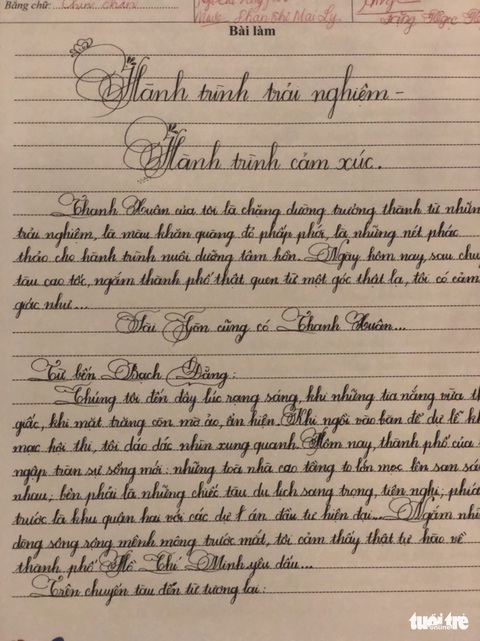 Bằng chữ: Chín chấm
Bài làm
Hành trình trải nghiệm –
Hành trình cảm xúc.
Thanh Xuân của tôi là chặng đường trưởng thành từ những
trải nghiệm, là màu khăn quàng đỏ phấp phới, là những nét phác
thảo cho hành trình nuôi dưỡng tâm hồn. Ngày hôm nay, sau chuy
tàu cao tốc, ngắm thành phố thật quen từ một góc thật lạ, tôi có cảm
giác như...
Sài Gòn cũng có Thanh Xuân...
Từ bến Bạch Đằng:
Chúng tôi đến đây lúc rạng sáng, khi những tia nắng vừa th
giấc, khi mặt trăng còn mờ ảo, ẩn hiện. Khi ngồi vào bàn để dự lễ kh
mạc hội thi, tôi dáo dác nhìn xung quanh. Hôm nay, thành phố của
ngập tràn sự sống mới: những toà nhà cao tầng to lớn mọc lên san sá
nhau; bên phải là những chiếc tàu du lịch sang trọng, tiện nghi; phía
trước là khu quận hai với các dự án đầu tư hiện đại... Ngắm nhì
dòng sông sóng mênh mông trước mắt, tôi cảm thấy thật tự hào về
thành phố Hồ Chí Minh yêu dấu...
Trên chuyến tàu đến từ tương lai:
tuổi trẻ